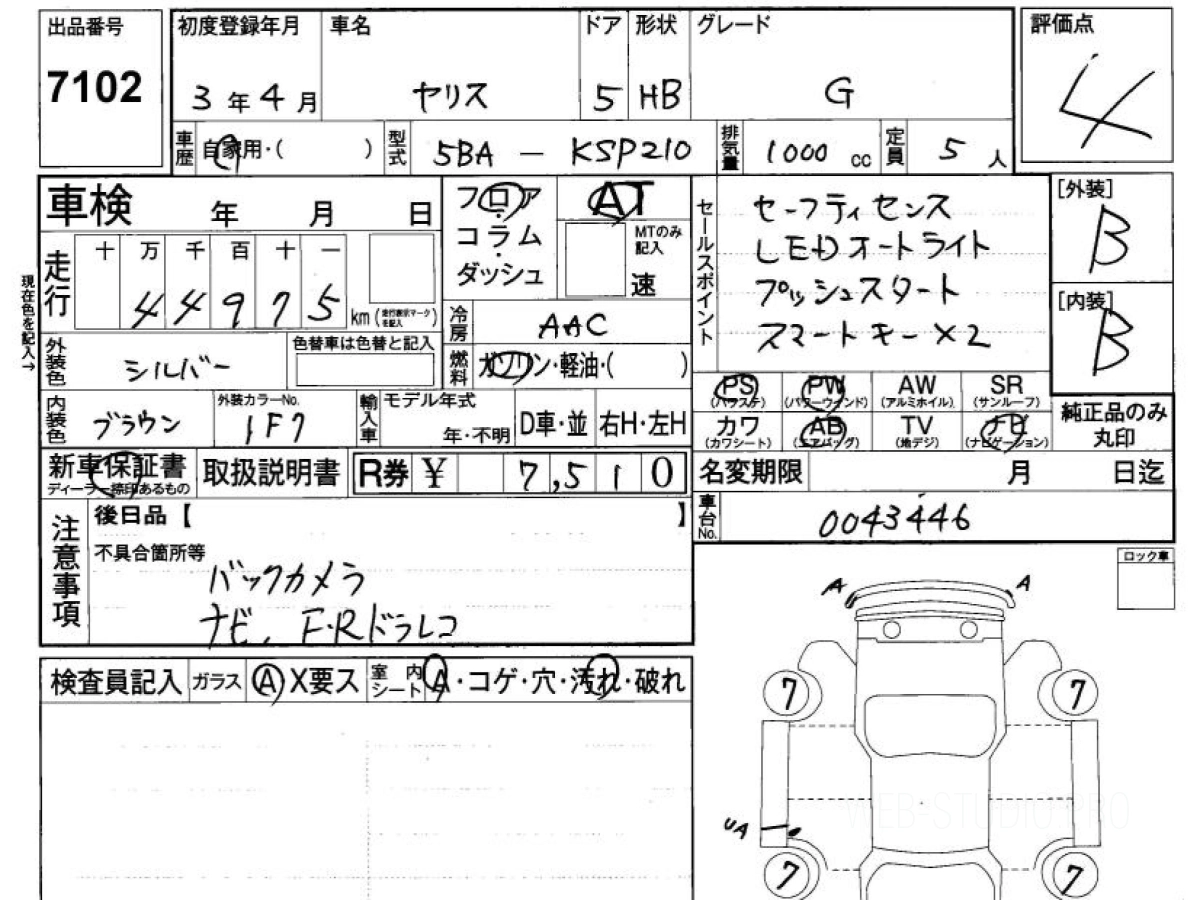 出品番号
7102
初度登録年月
3年4月
車名
ヤリス
ドア
5
形状
HB
グレード
G
評価点
4
車歴 自家用・( )
型式 5BA — KSP210
排気量 1000 cc
定員 5人
車検 年 月 日
フロア
コラム
・
ダッシュ
AT
MTのみ
記入
速
セールスポイント
セーフティセンス
LEDオートライト
プッシュスタート
スマートキー×2
[外装]
B
[内装]
B
現在色を記入→
走行
十 万 千 百 十 一
4 4 9 7 5
km
冷房 AAC
燃料 ガソリン・軽油・( )
外装色 シルバー
色替車は色替と記入
内装色 ブラウン
外装カラーNo.
1F7
輸入車
モデル年式
年・不明
D車・並
右H・左H
PS
(パワステ)
PW
(パワーウインド)
AW
(アルミホイル)
SR
(サンルーフ)
カワ
(カワシート)
AB
(エアバッグ)
TV
(地デジ)
ナビ
(ナビゲーション)
純正品のみ
丸印
新車保証書
ディーラー捺印あるもの
取扱説明書
R券 ¥ 7,510
名変期限 月 日迄
車台No. 0043446
注意事項
後日品【 】
不具合箇所等
バックカメラ
ナビ、F・Rドラレコ
ロック車
A
A
検査員記入
ガラス A X要ス
室内シート A・コゲ・穴・汚れ・破れ
7
7
UA
7
7
WEB-STUDIO.PRO